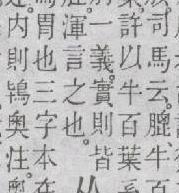 司馬云。膍牛百
許以牛百葉
一義。實則皆
渾言之也。从
胃也三字本在
内則鴇奧注。